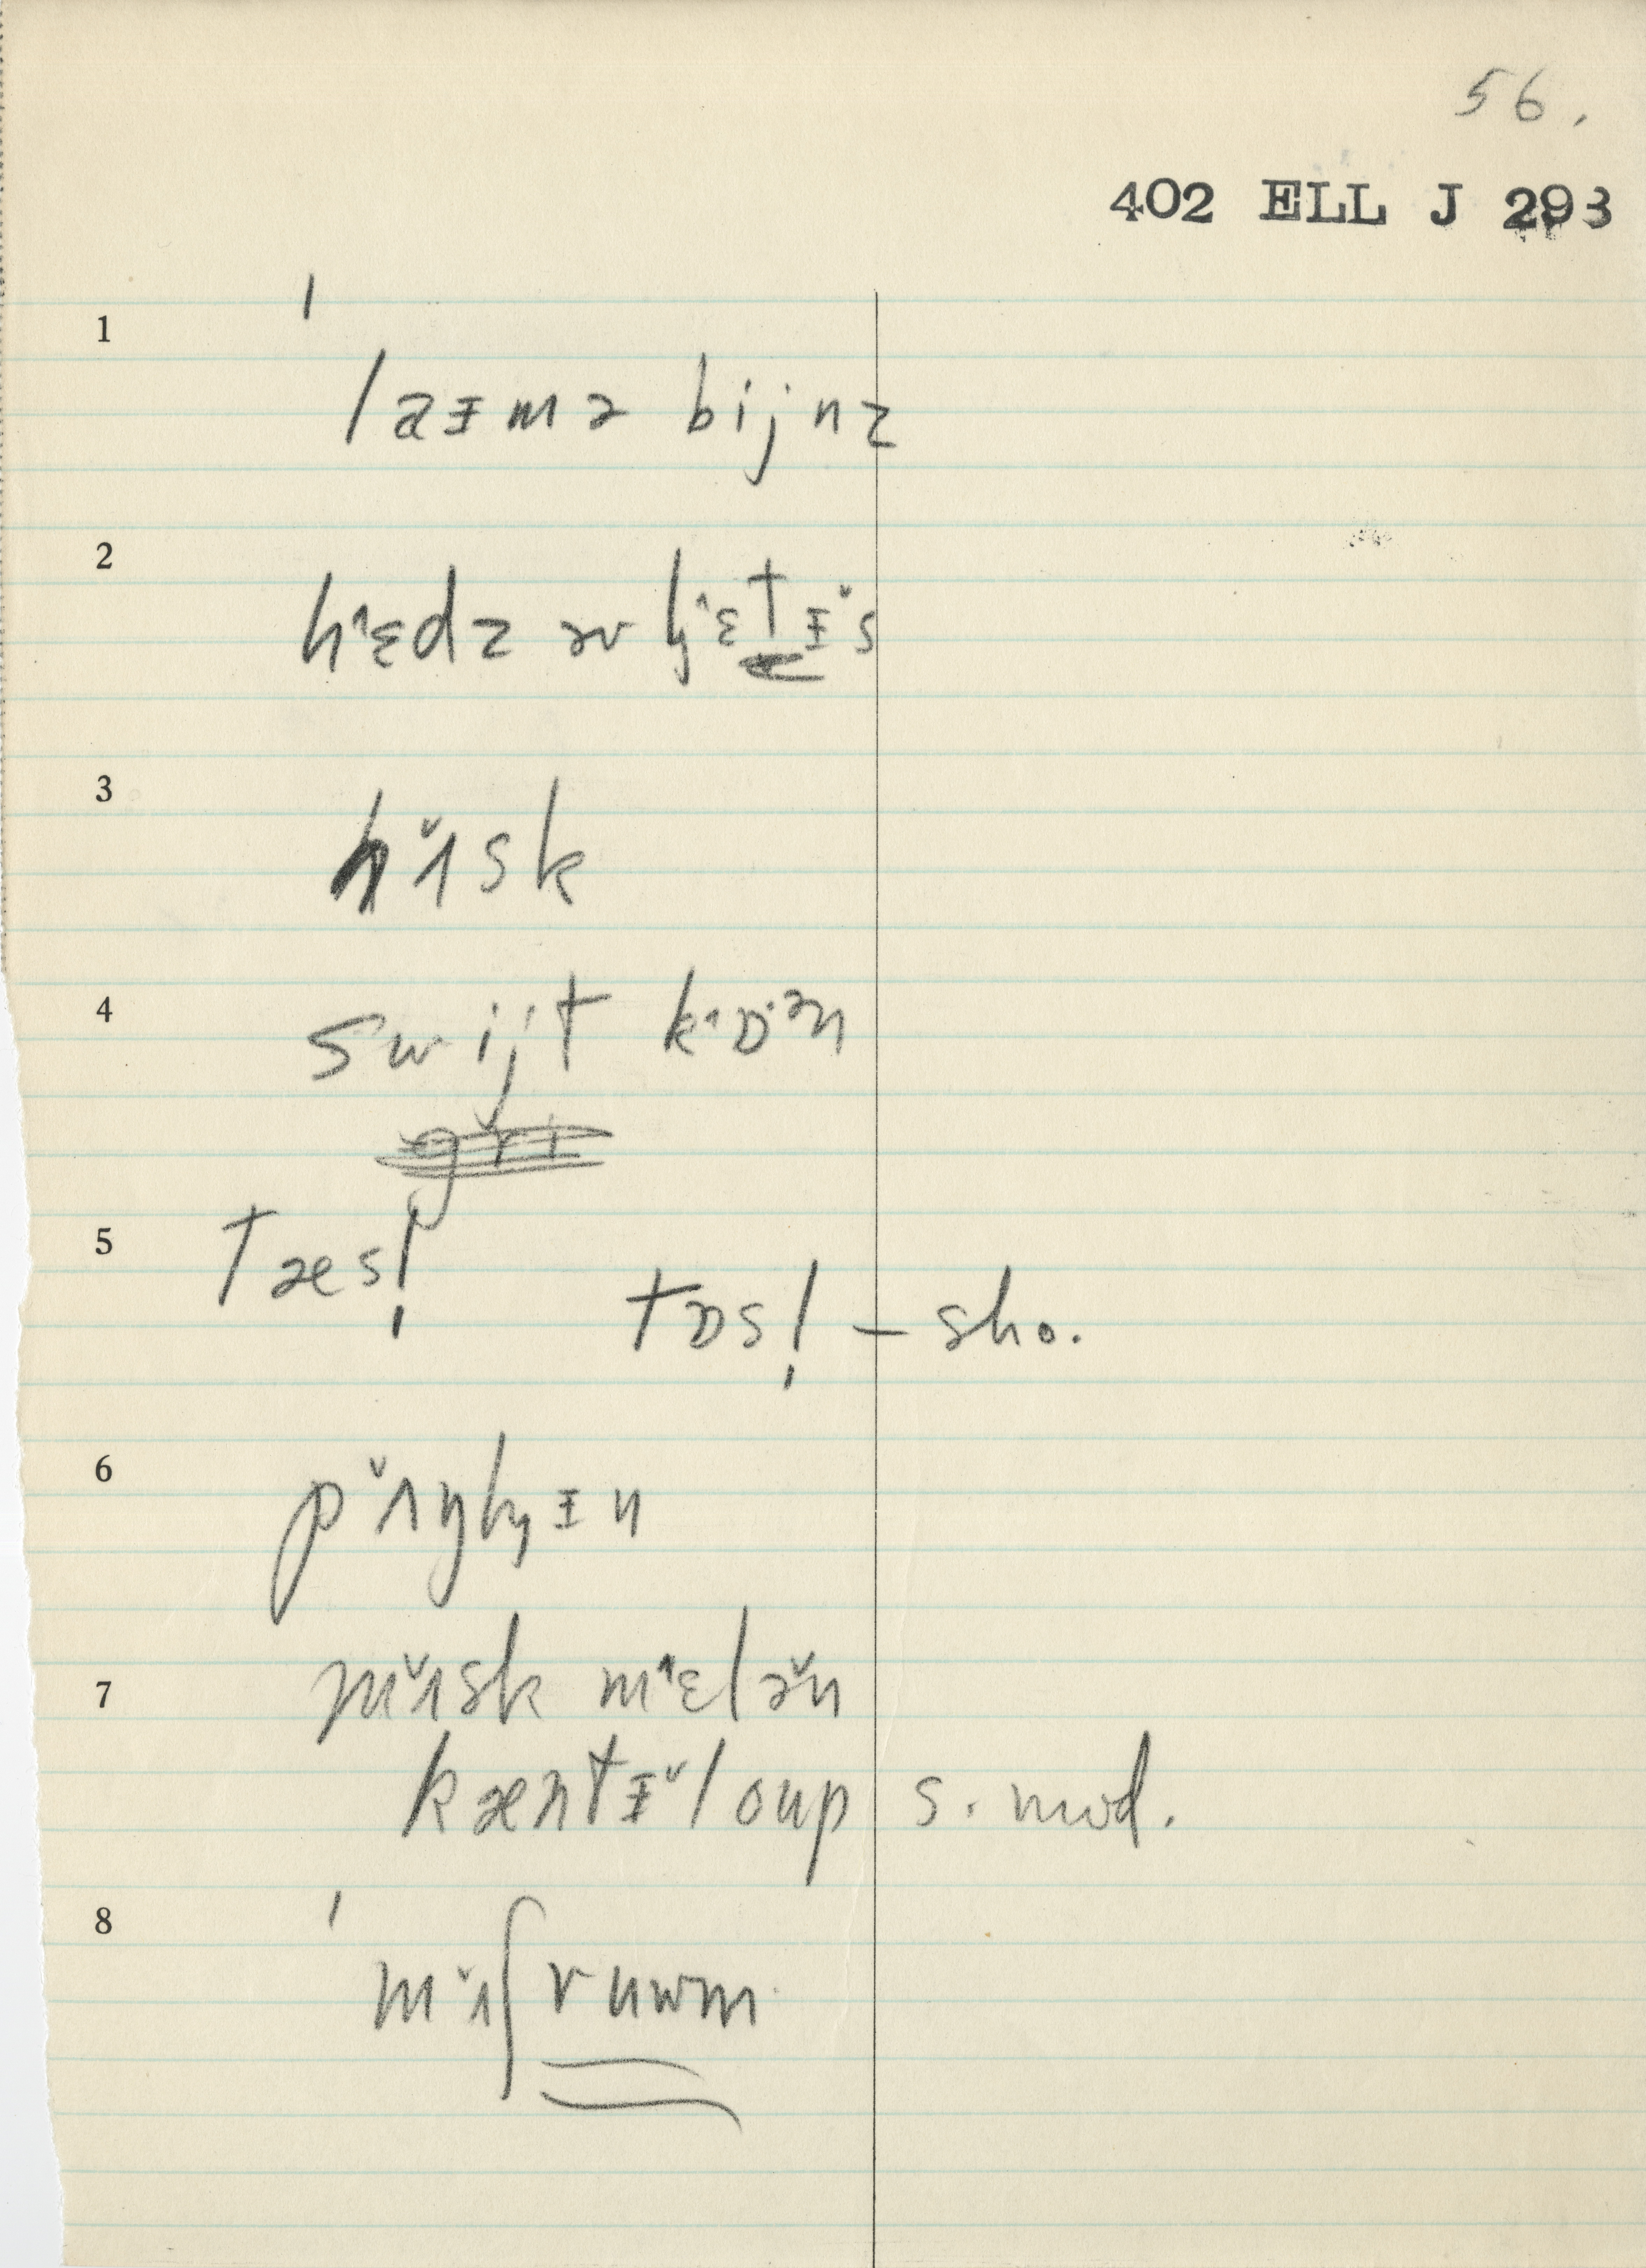 56.
402 ELL J 293
1 ˈ
laɪmə bijnz
2 hˆɛdz əv l̹ˆɛtɪ̌s
3 hʌ̌sk
4 swijt kˆɒˑᵊn
5 tæsl̩
tɒsl̩ – sho.
6 pʌ̌ŋkɪn
7 mʌ̌sk mˆɛlə̌n
kæntɪ̌loup s. mod.
8 ˈ
mʌ̌ʃruwm